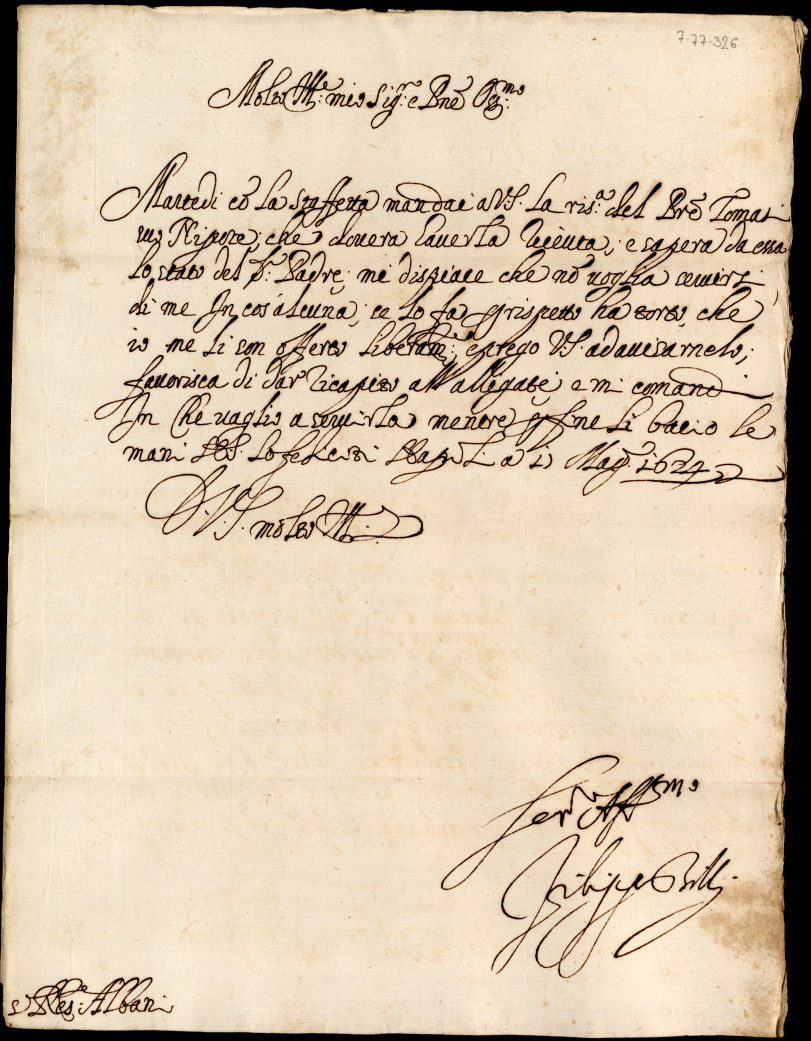 7-77-326
Molto Ill.e mio Sig.r e Pnẽ Oss.mo
Martedi cõ la staffetta mandai a V.S. la ris.a del Prẽ Tomasi
suo Nipote, che dovera haverla riceuta, e sapera da essa
lo stato del Padre, mi dispiace che nõ voglia servirsi
di me In cosa alcuna, se lo fa p rispetto ha torto, che
io me li son offerto liberam.te, e prego V.S. ad avisarnelo,
favorisca di dar ricapito all'allegate, e mi comandi
In che vaglio a servirla mentre p fine li bacio le
mani N.S. lo feliciti Napoli a li Mag.o 1624
D. V.S. molto Ill.
Ser.re Aff.mo
Filippo Billi
Albani